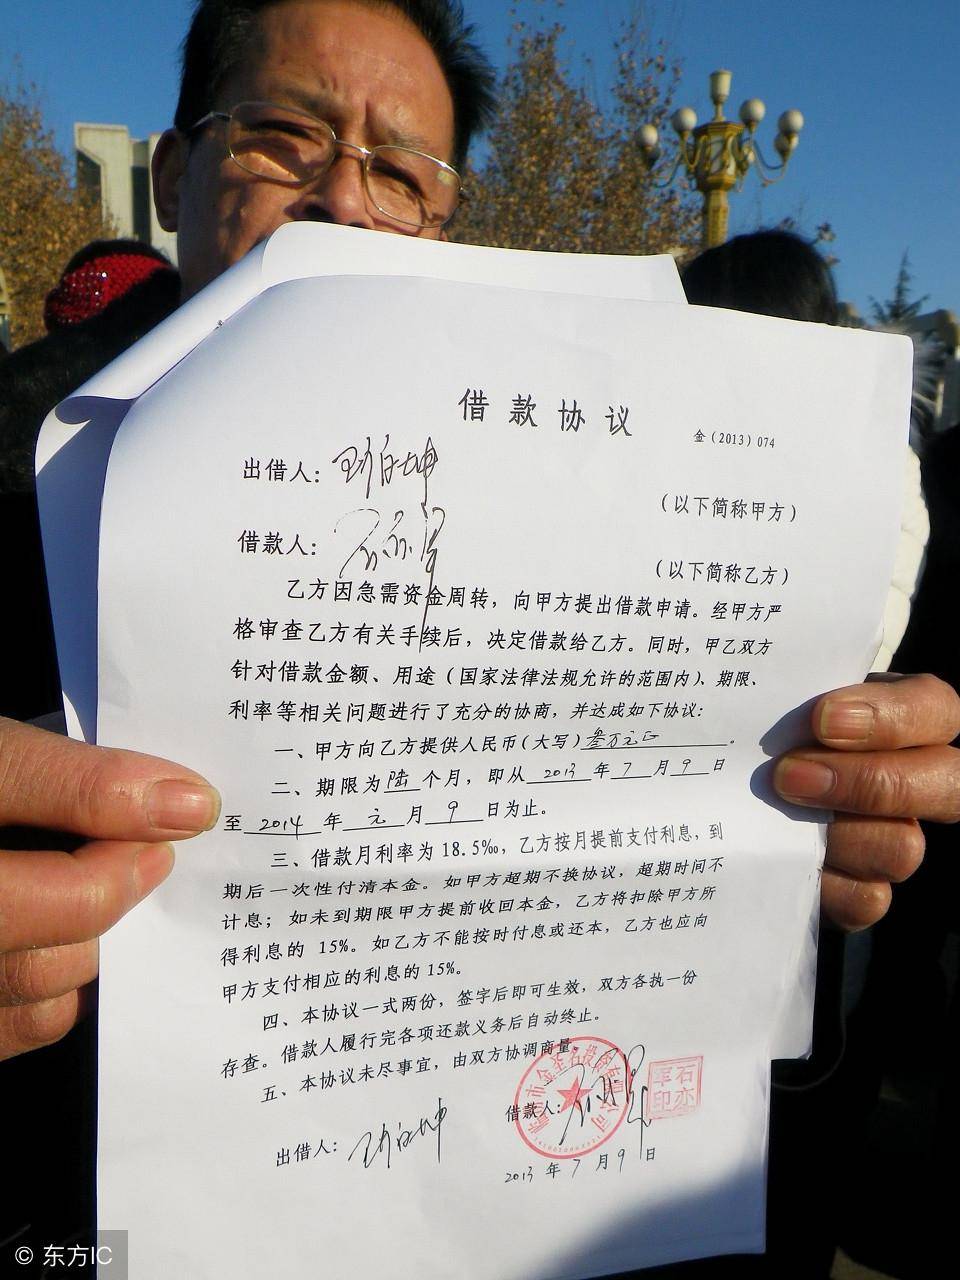 借款协议
金(2013)074
出借人:
(以下简称甲方)
借款人:
(以下简称乙方)
乙方因急需资金周转，向甲方提出借款申请。经甲方严
格审查乙方有关手续后，决定借款给乙方。同时，甲乙双方
针对借款金额、用途（国家法律法规允许的范围内）、期限、
利率等相关问题进行了充分的协商，并达成如下协议：
一、甲方向乙方提供人民币(大写)叁万元正。
二、期限为陆个月，即从2013年7月9日
至2014年元月9日为止。
三、借款月利率为18.5‰，乙方按月提前支付利息，到
期后一次性付清本金。如甲方超期不换协议，超期时间不
计息；如未到期限甲方提前收回本金，乙方将扣除甲方所
得利息的 15%。如乙方不能按时付息或还本，乙方也应向
甲方支付相应的利息的15%。
四、本协议一式两份，签字后即可生效，双方各执一份
存查。借款人履行完各项还款义务后自动终止。
五、本协议未尽事宜，由双方协调商量。
出借人:
借款人:
石亦军印
2013年7月9日
© 东方IC